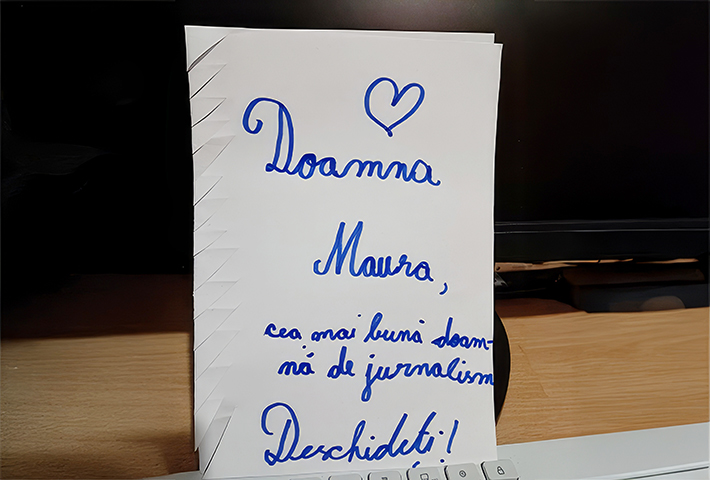 Doamna
Maura,
cea mai bună doam-
nă de jurnalism
Deschideți!